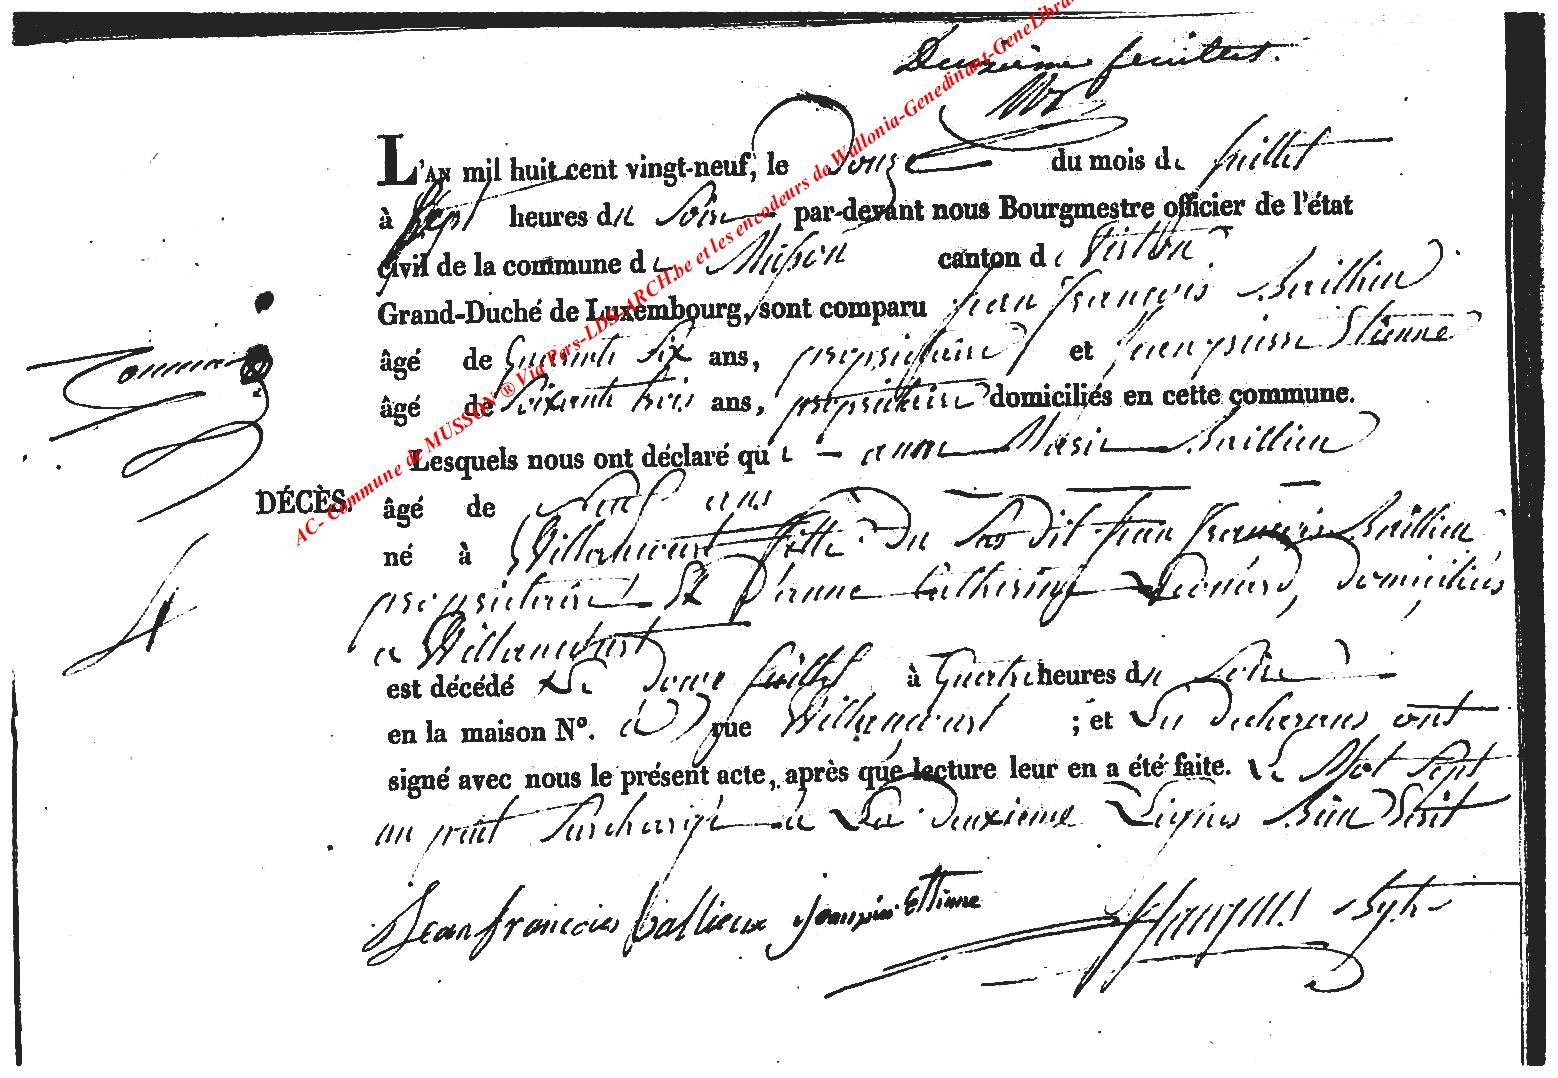 Deuxième feuillet.
L'AN mil huit cent vingt-neuf, le Douze du mois de Juillet
à Sept heures du Soir par-devant nous Bourgmestre officier de l'état
civil de la commune de Musson canton de Virton
Grand-Duché de Luxembourg, sont comparu Jean François Baillieu
âgé de Quarante Six ans, propriétaire et Jeanpierre Etienne
âgé de Soixante trois ans, propriétaire domiciliés en cette commune.
Lesquels nous ont déclaré que anne Marie Baillieu
âgé de Neuf ans
DÉCÈS.
né à Willancourt fille du Sus dit Jean François Baillieu
propriétaire Et D'anne Catherine Léonard, domiciliés
a Willancourt
est décédé Le douze Juillet à Quatre heures du Soire
en la maison Nº. rue Willancourt ; et Les déclarans ont
signé avec nous le présent acte, après que lecture leur en a été faite. Le Mot Sept
Surchargé de La deuxieme Lignes
Jean francois ballieux jeanpier Ettienne
AC- Commune de MUSSON ® Via Pers-LDS-ARCH.be et les encodeurs de Wallonia-Genedinant-GeneLibra